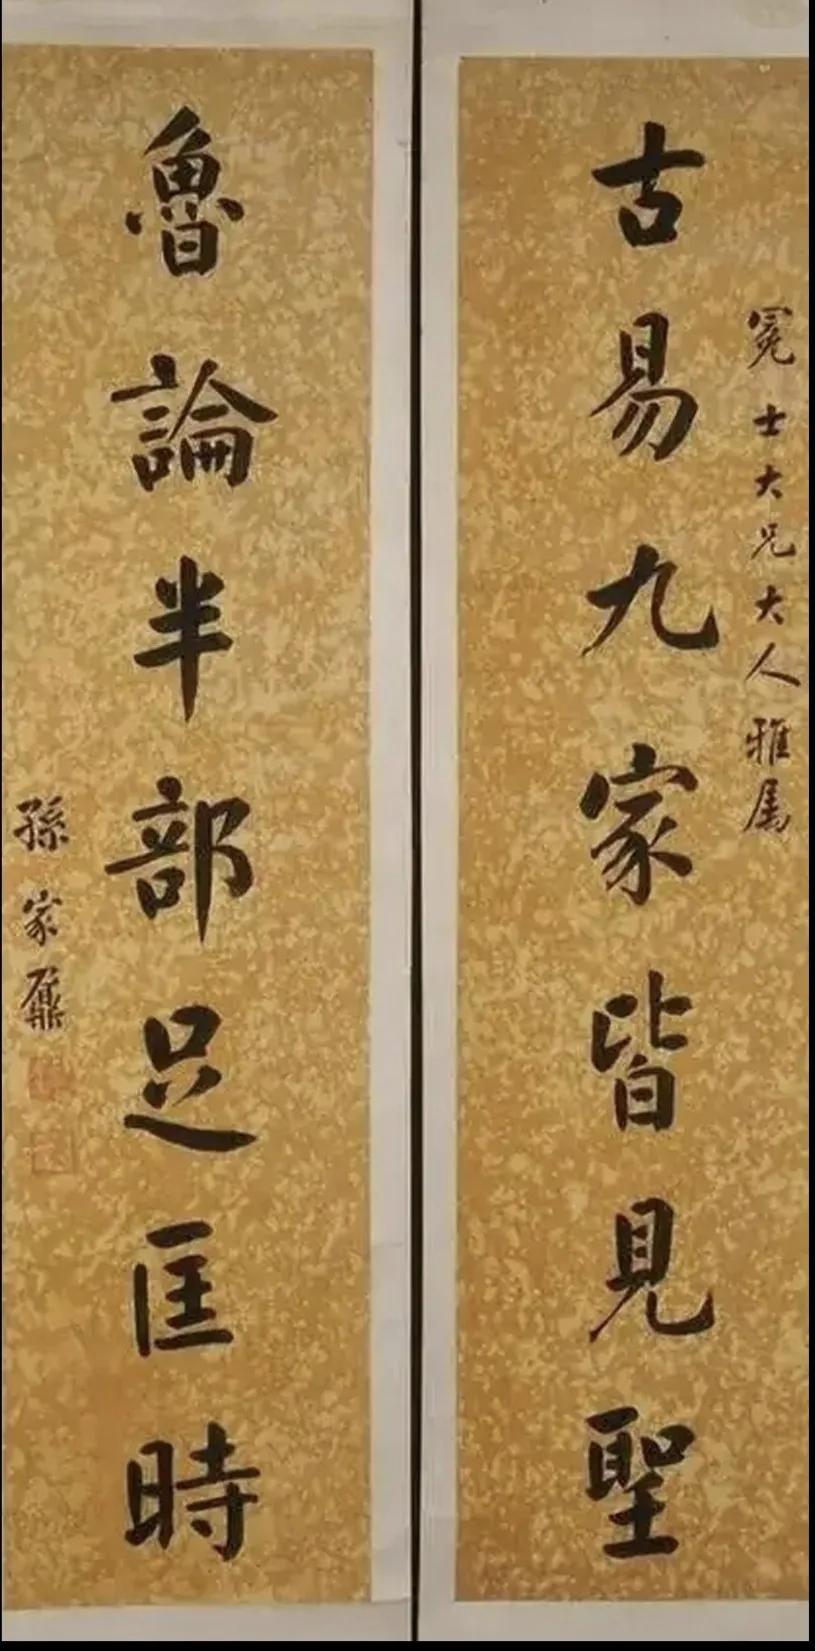 冕士大兄大人雅属
古易九家皆見聖
魯論半部足匡時
孫家鼐